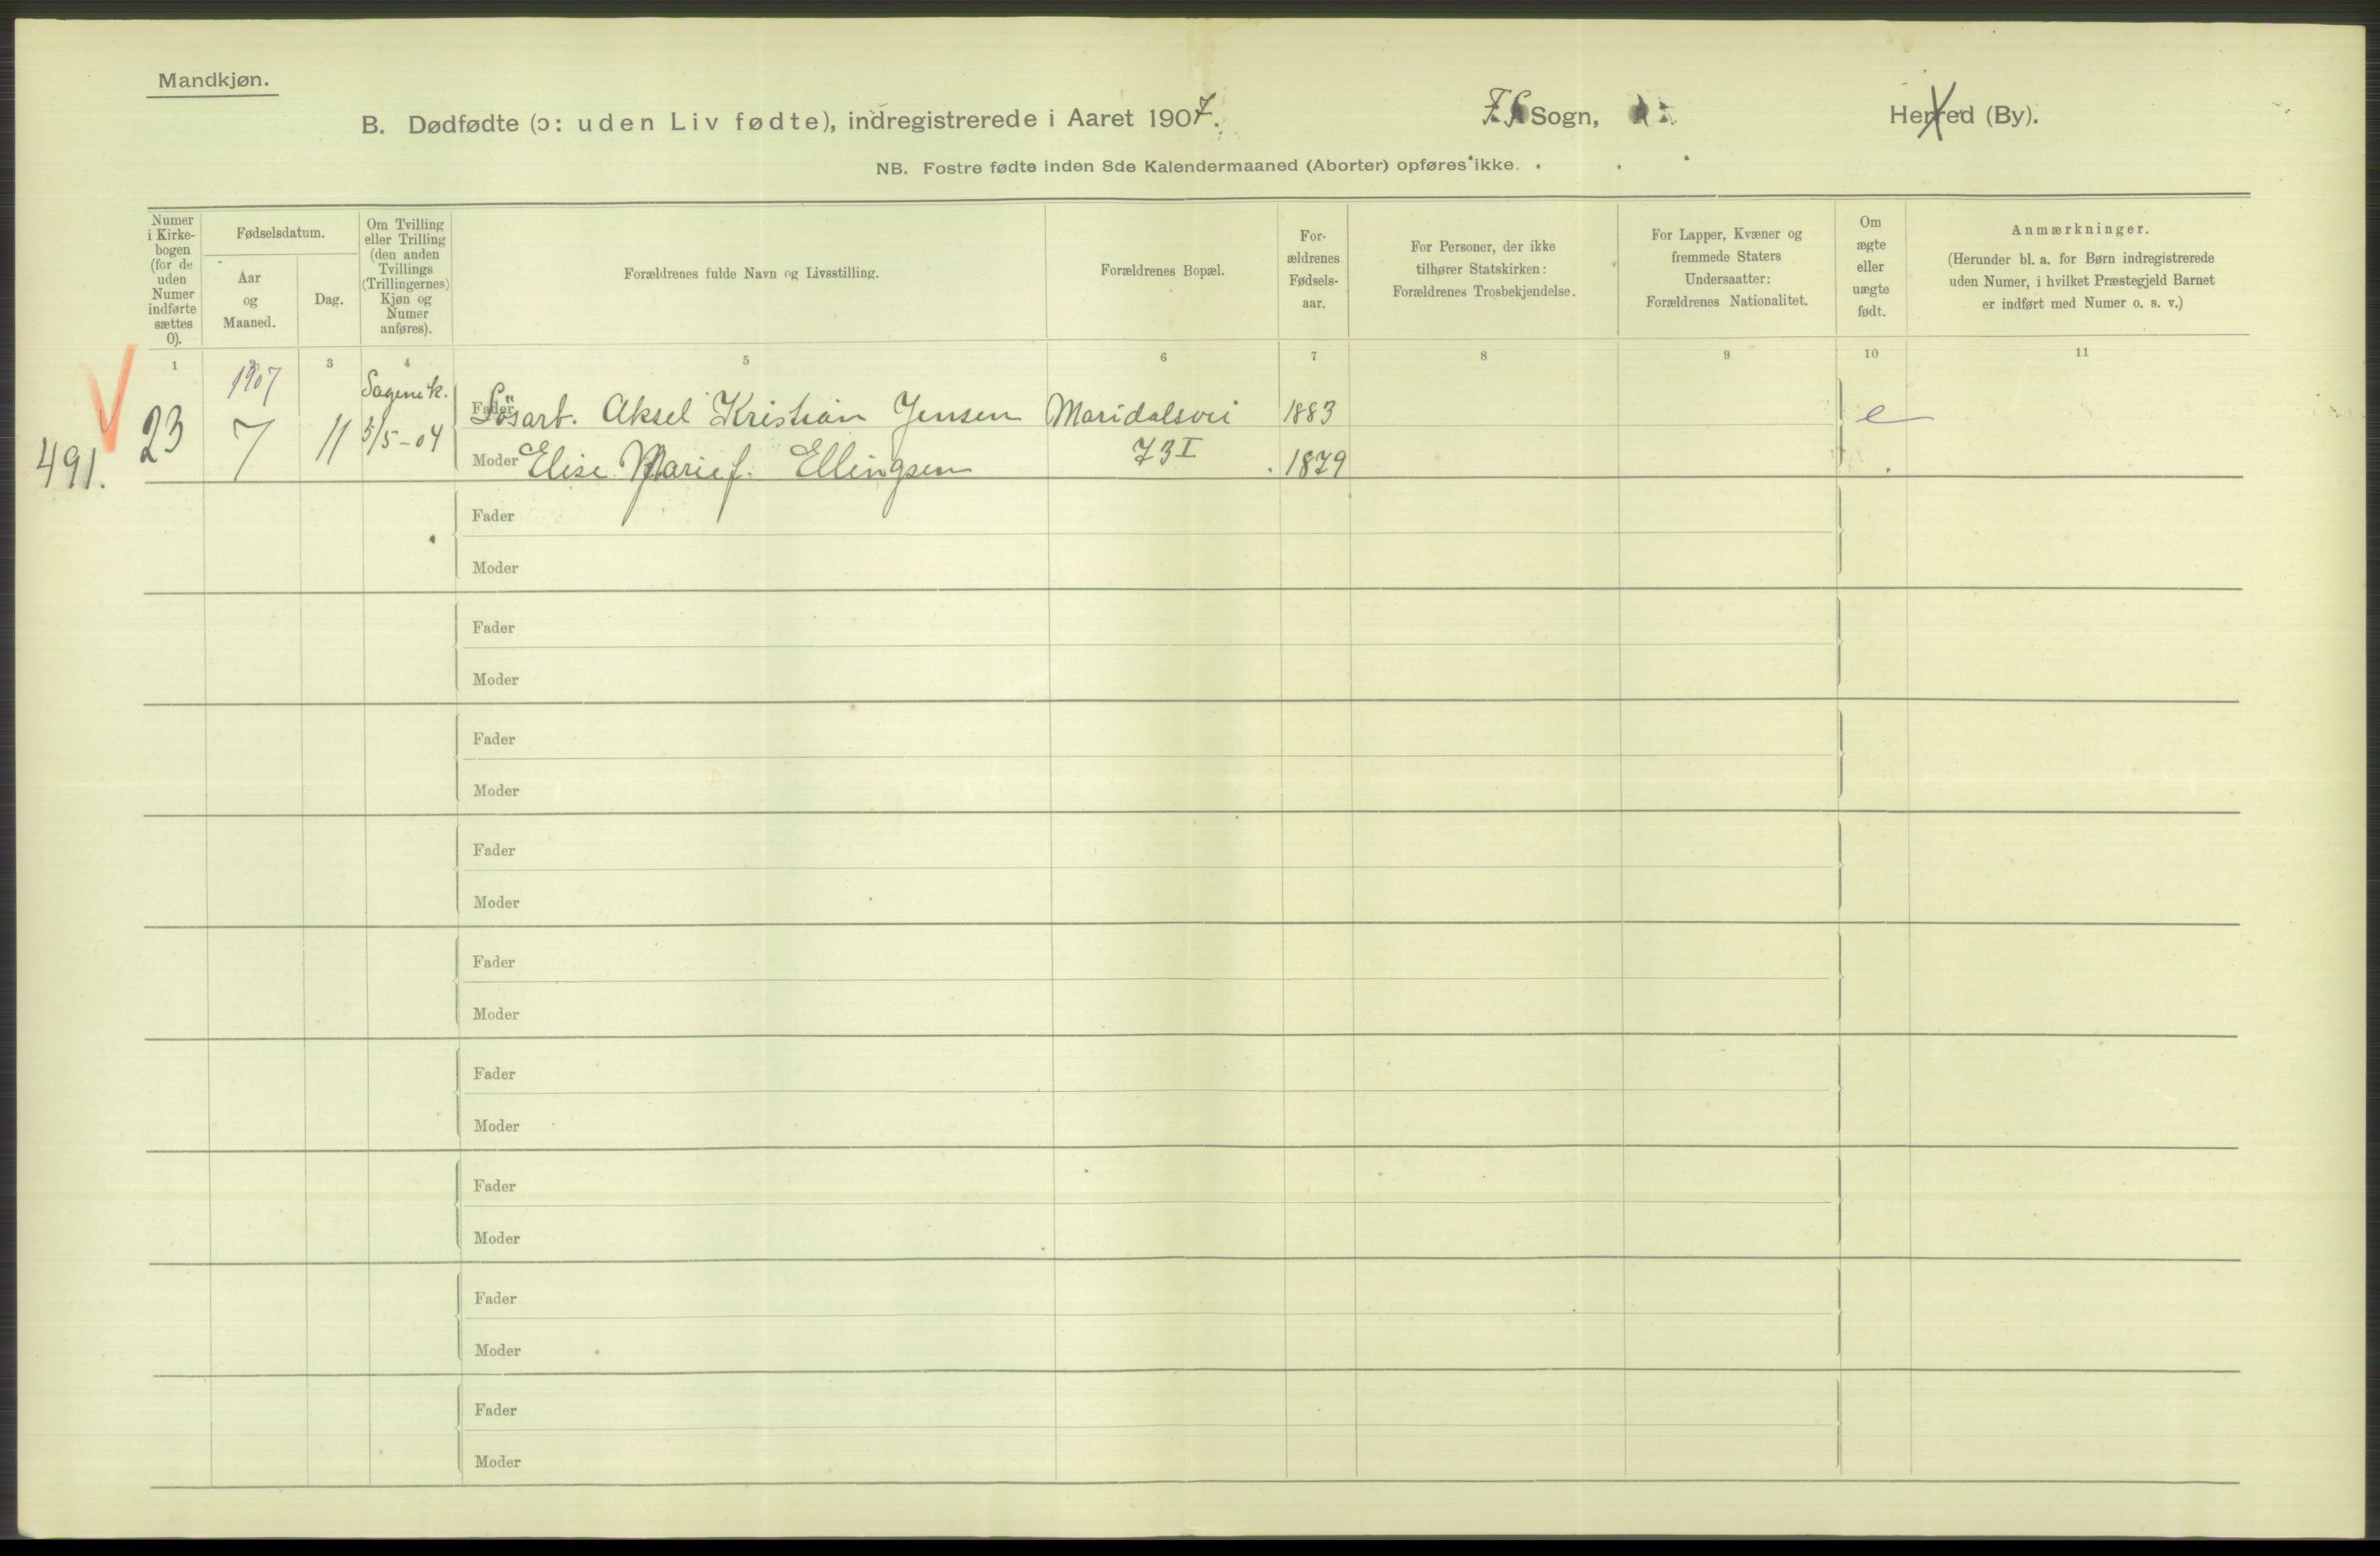 Mandkjøn.
B. Dødfødte (ɔ: uden Liv fødte), indregistrerede i Aaret 1907. Sogn, Herred (By).
NB. Fostre fødte inden 8de Kalendermaaned (Aborter) opføres ikke.
Numer i Kirke-bogen (for de uden Numer indførte sættes 0).
Fødselsdatum.
Aar og Maaned.
Dag.
Om Tvilling eller Trilling (den anden Tvillings (Trillingernes) Kjøn og Numer anføres).
Forældrenes fulde Navn og Livsstilling.
Forældrenes Bopæl.
For-ældrenes Fødsels-aar.
For Personer, der ikke tilhører Statskirken: Forældrenes Trosbekjendelse.
For Lapper, Kvæner og fremmede Staters Undersaatter: Forældrenes Nationalitet.
Om ægte eller uægte født.
Anmærkninger.
(Herunder bl. a. for Børn indregistrerede uden Numer, i hvilket Præstegjeld Barnet er indført med Numer o. s. v.)
1 2 3 4 5 6 7 8 9 10 11
1907 Sagene k.
491. 23 7 11 5/5-04 Fader Løsarb. Aksel Kristian Jensen Maridalsvei 1883 e
Moder Elise Marie f. Ellingsen 73 I 1879
Fader
Moder
Fader
Moder
Fader
Moder
Fader
Moder
Fader
Moder
Fader
Moder
Fader
Moder
Fader
Moder
Fader
Moder